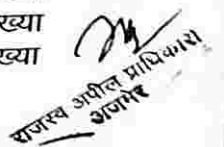 ख्या
ख्या
राजस्व अपील प्राधिकारी
अजमेर